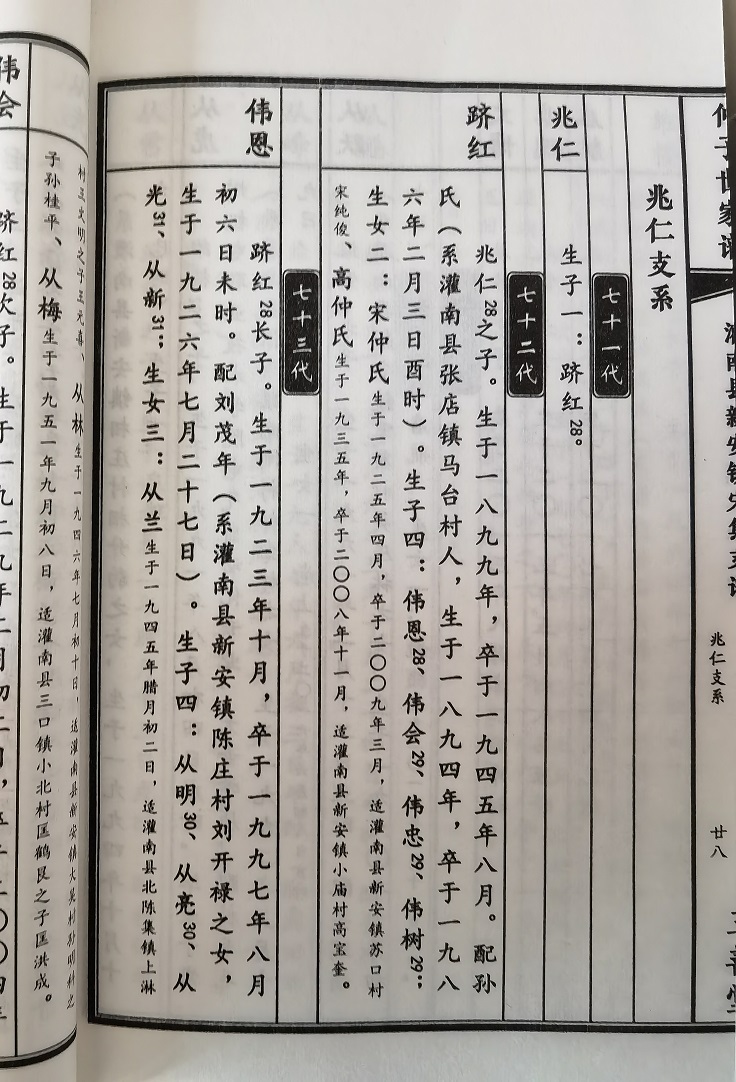 兆仁支系
廿八
兆仁支系
七十一代
兆仁
生子一：跻红28。
七十二代
跻红
兆仁28之子。生于一八九九年，卒于一九四五年八月。配孙
氏（系灌南县张店镇马台村人，生于一八九四年，卒于一九八
六年二月三日酉时）。生子四：伟恩28、伟会29、伟忠29、伟树29；
生女二：宋仲氏生于一九二五年四月，卒于二〇〇九年三月，适灌南县新安镇苏口村
宋纯俊、高仲氏生于一九三五年，卒于二〇〇八年十一月，适灌南县新安镇小庙村高宝奎。
七十三代
伟恩
跻红28长子。生于一九二三年十月，卒于一九九七年八月
初六日未时。配刘茂年（系灌南县新安镇陈庄村刘开禄之女，
生于一九二六年七月二十七日）。生子四：从明30、从亮30、从
光31、从新31；生女三：从兰生于一九四五年腊月初二日，适灌南县北陈集镇上淋
村王文明之子王元喜、从林生于一九四六年七月初十日，适灌南县新安镇大英村孙明科之
子孙桂平、从梅生于一九五一年九月初八日，适灌南县三口镇小北村匡鹤艮之子匡洪成。
伟会
跻红28次子。生于一九二九年二月初二日，卒于二〇〇四年